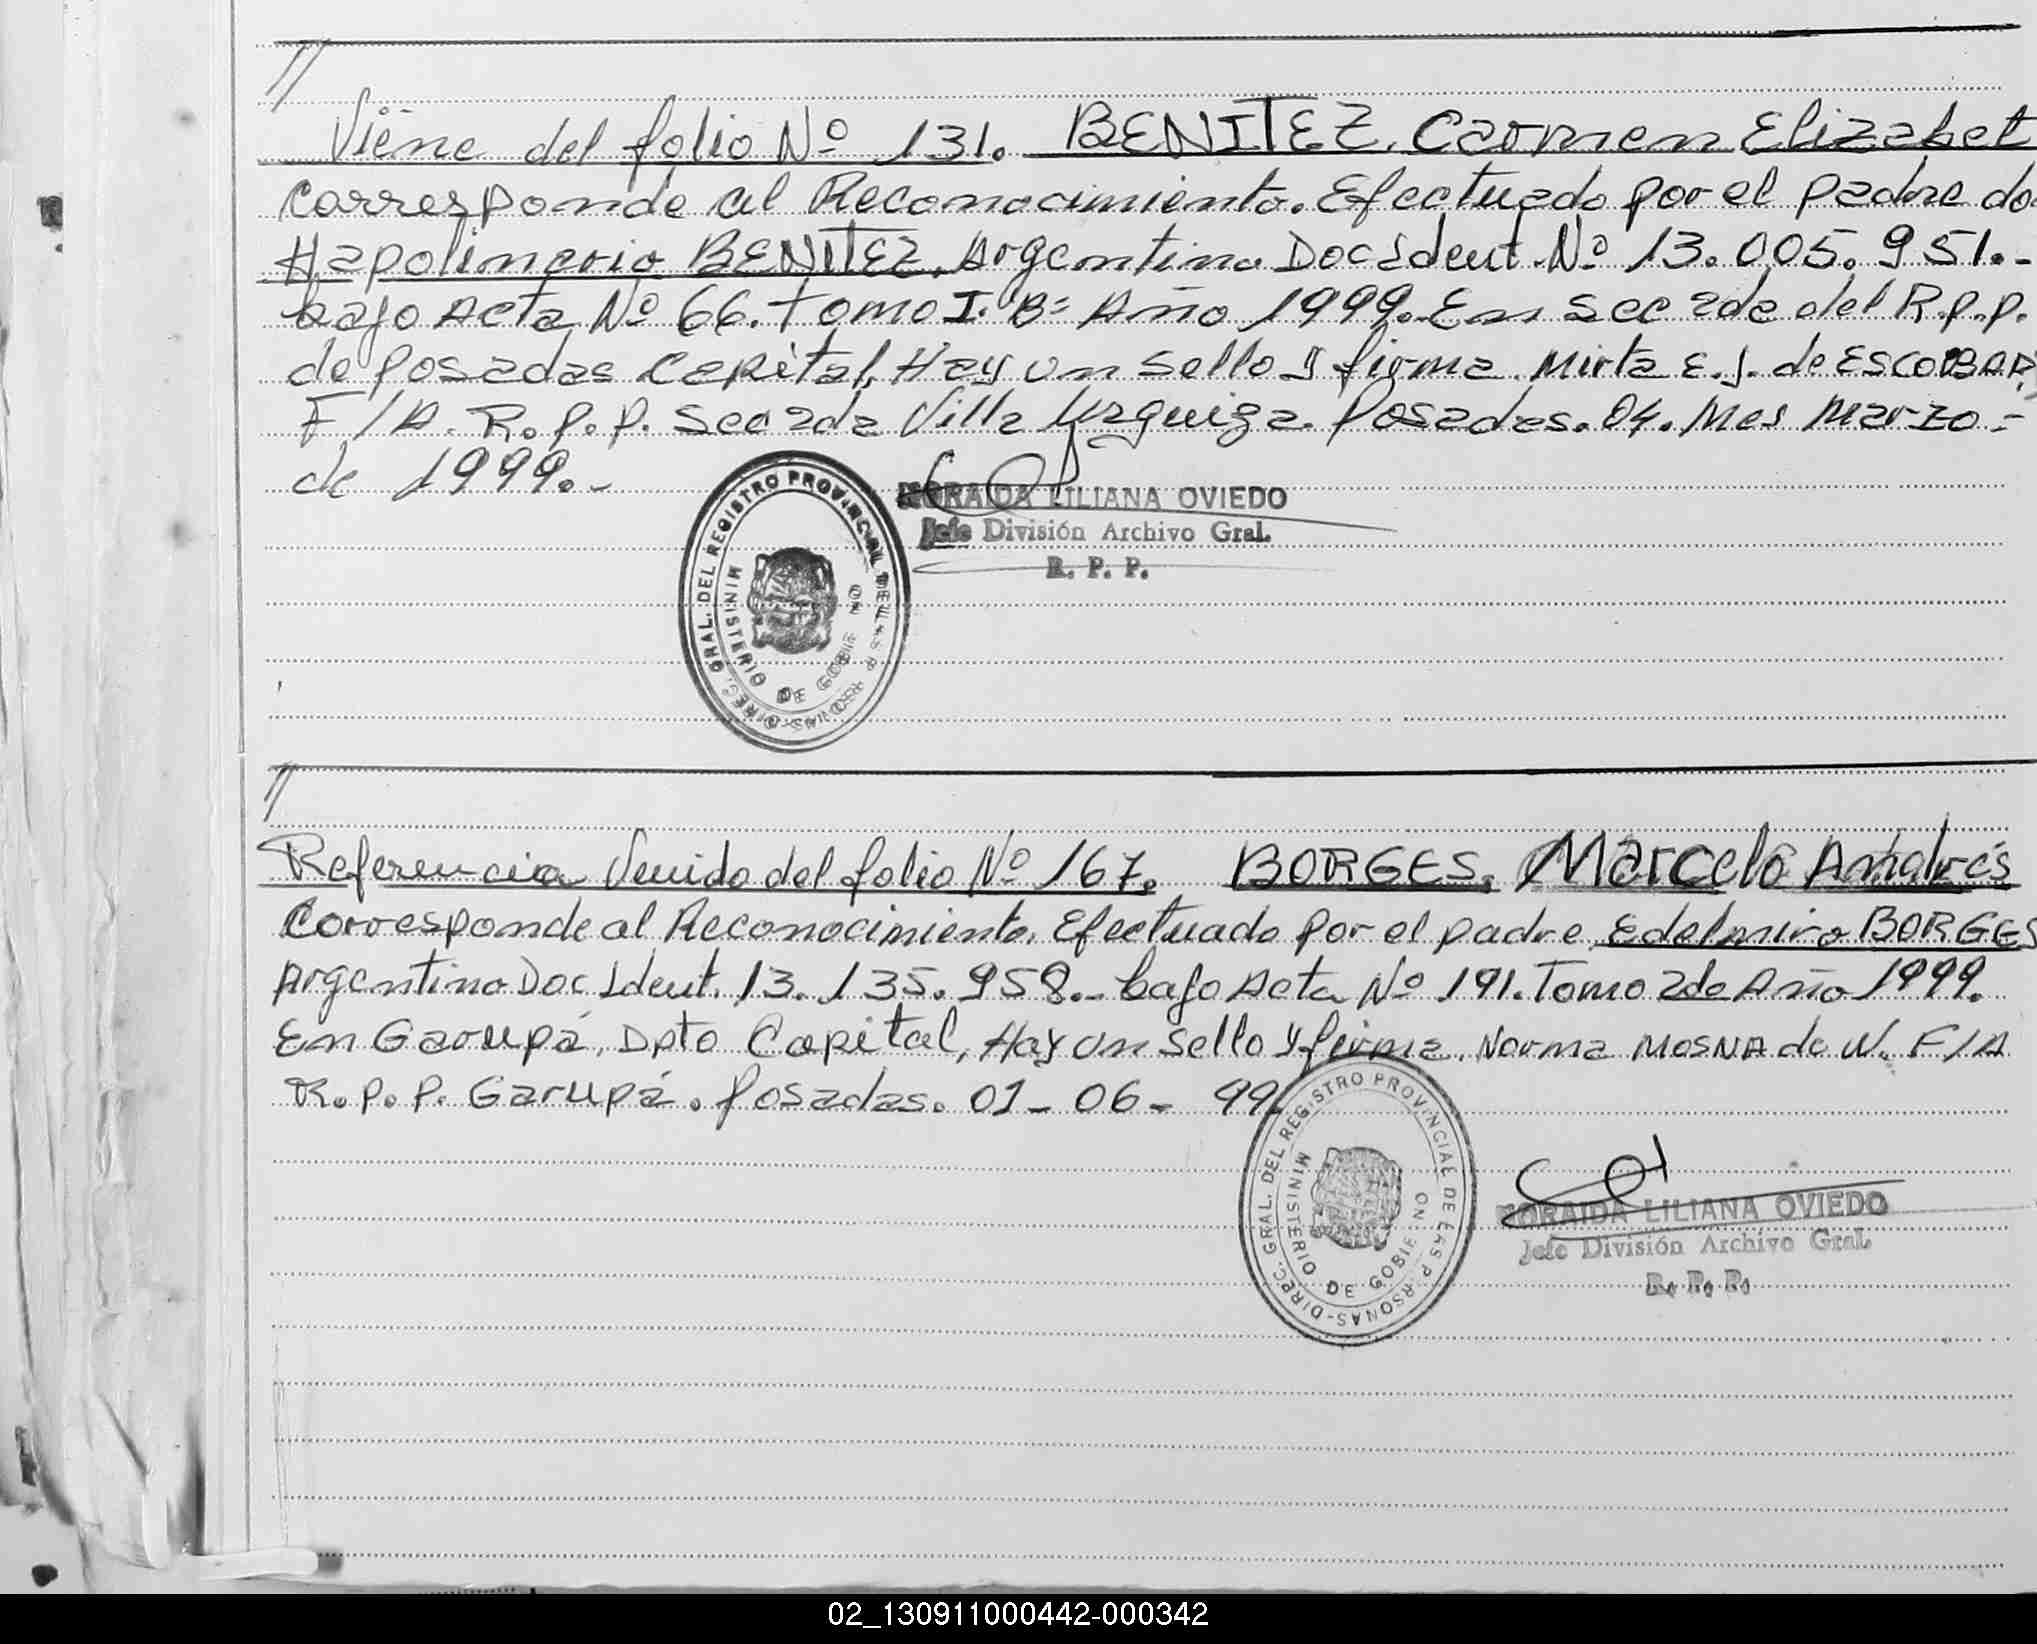 //
Viene del folio Nº 131. BENITEZ, Carmen Elizabet
corresponde al Reconocimiento. Efectuado por el padre do
Hapolinario BENITEZ, Argentino Doc Ident. Nº 13.005.951.-
bajo Acta Nº 66. Tomo I. Bº Año 1999. En Sec 2da del R.p.p.
de Posadas Capital, Hay un sello y firma. Mirta E. J. de ESCOBAR,
F/A. R.p.p. Sec 2da Villa Urquiza. Posadas. 04. Mes Marzo.-
de 1999.-
ZORAIDA LILIANA OVIEDO
Jefe División Archivo Gral.
R. P. P.
DIREC. GRAL. DEL REGISTRO PROVINCIAL DE LAS PERSONAS-
MINISTERIO DE GOBIERNO
//
Referencia Venido del folio Nº 167. BORGES, Marcelo Andrés
Corresponde al Reconocimiento. Efectuado por el padre, Edelmiro BORGES
Argentino Doc Ident. 13.135.958.- bajo Acta Nº 191. Tomo 2do Año 1999.
En Garupá, Dpto Capital, Hay un sello y firma. Norma MOSNA de N. F/A
R.p.p. Garupá. Posadas. 01-06-99.
DIREC. GRAL. DEL REGISTRO PROVINCIAL DE LAS PERSONAS-
MINISTERIO DE GOBIERNO
ZORAIDA LILIANA OVIEDO
Jefe División Archivo Gral.
R. P. P.
02_130911000442-000342